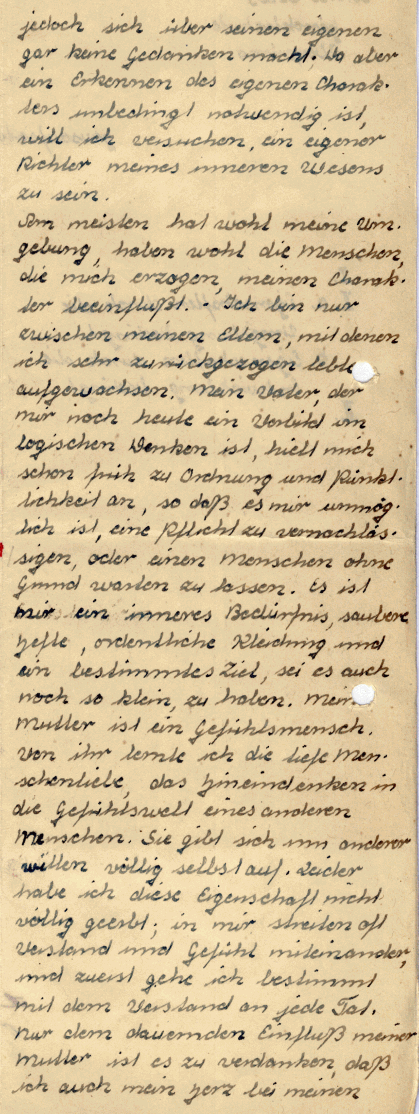 jedoch sich über seinen eigenen
gar keine Gedanken macht. Da aber
ein Erkennen des eigenen Charak-
ters unbedingt notwendig ist,
will ich versuchen, ein eigener
Richter meines inneren Wesens
zu sein.
Am meisten hat wohl meine Um-
gebung, haben wohl die Menschen,
die mich erzogen, meinen Charak-
ter beeinflußt. - Ich bin nur
zwischen meinen Eltern, mit denen
ich sehr zurückgezogen lebte
aufgewachsen. Mein Vater, der
mir noch heute ein Vorbild im
logischen Denken ist, hielt mich
schon früh zu Ordnung und Pünkt-
lichkeit an, so daß es mir unmög-
lich ist, eine Pflicht zu vernachläs-
sigen, oder einen Menschen ohne
Grund warten zu lassen. Es ist
mir ein inneres Bedürfnis, saubere
Hefte, ordentliche Kleidung und
ein bestimmtes Ziel, sei es auch
noch so klein, zu haben. Meine
Mutter ist ein Gefühlsmensch.
Von ihr lernte ich die tiefe Men-
schenliebe, das Hineindenken in
die Gefühlswelt eines anderen
Menschen. Sie gibt sich um anderer
willen völlig selbst auf. Leider
habe ich diese Eigenschaft nicht
völlig geerbt; in mir streiten oft
Verstand und Gefühl miteinander,
und zuerst gehe ich bestimmt
mit dem Verstand an jede Tat.
Nur dem dauernden Einfluß meiner
Mutter ist es zu verdanken, daß
ich auch mein Herz bei meinen